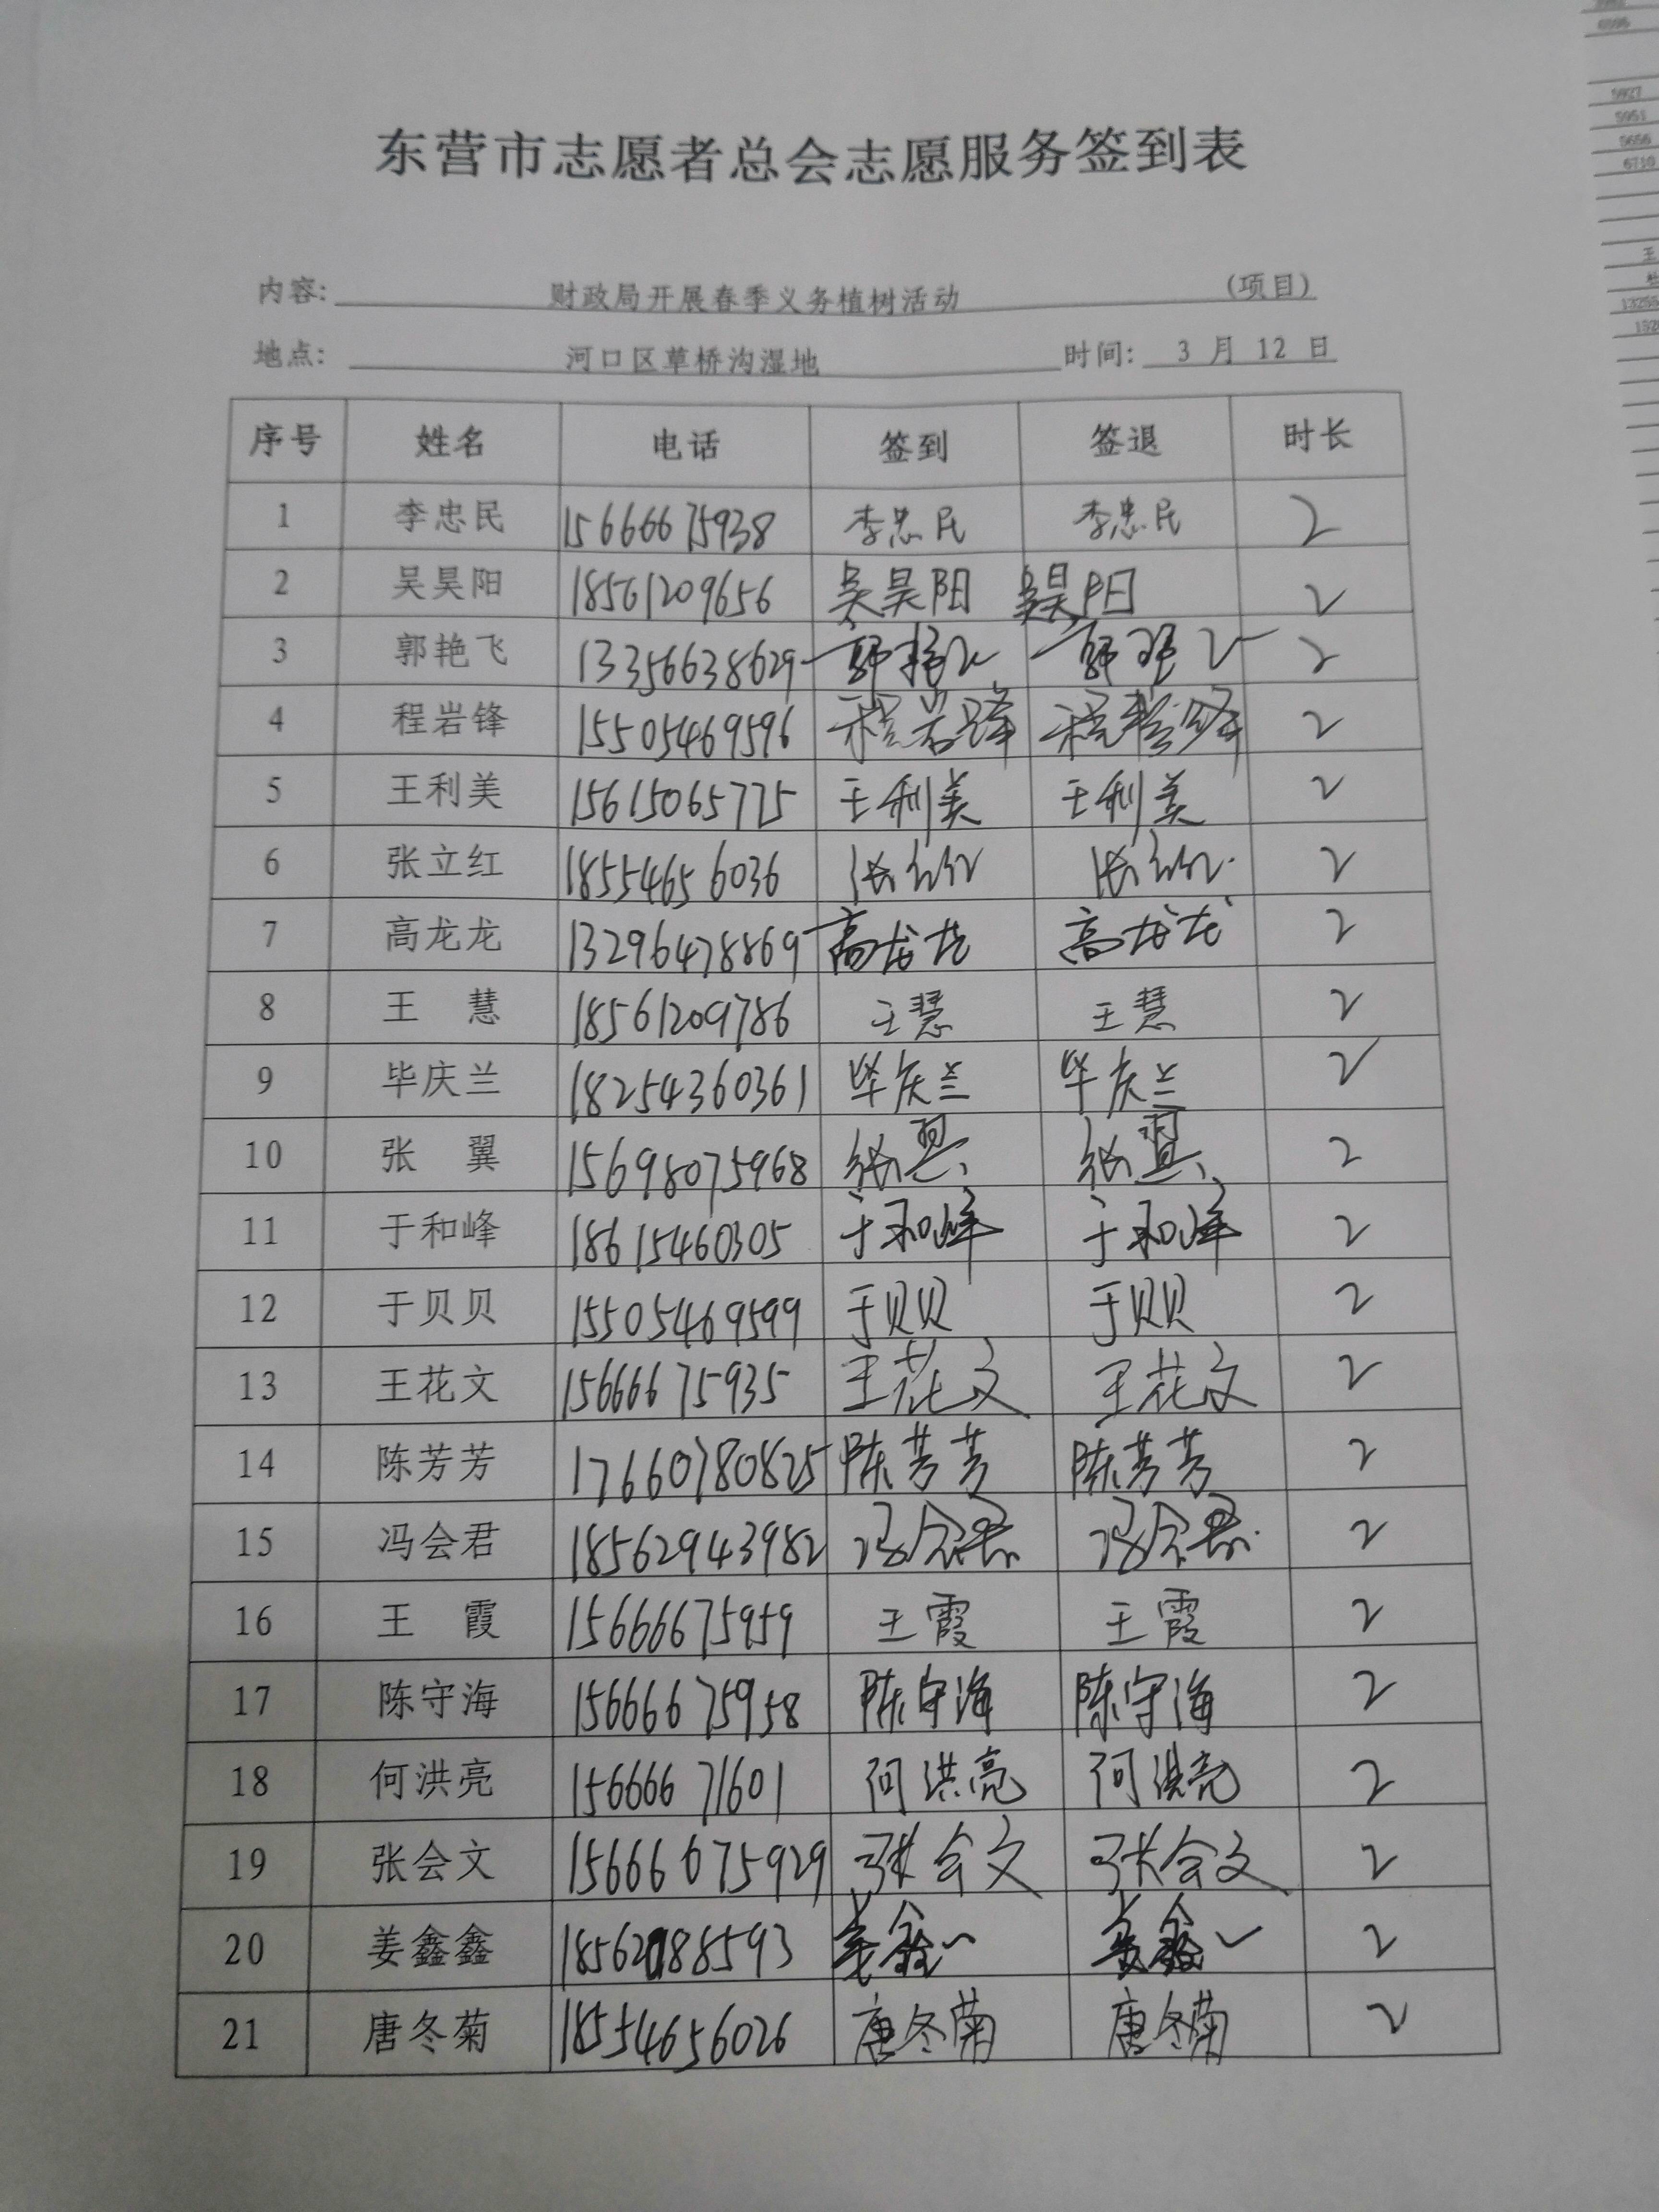 东营市志愿者总会志愿服务签到表
内容: 财政局开展春季义务植树活动 (项目)
地点: 河口区草桥沟湿地 时间: 3 月 12 日
序号 姓名 电话 签到 签退 时长
1 李忠民 15666675938 李忠民 李忠民 2
2 吴昊阳 18561209656 吴昊阳 吴昊阳 2
3 郭艳飞 13356638629 郭艳飞 郭艳飞 2
4 程岩锋 15505469596 程岩锋 程岩锋 2
5 王利美 15615065775 王利美 王利美 2
6 张立红 18554656036 张立红 张立红 2
7 高龙龙 13296478869 高龙龙 高龙龙 2
8 王 慧 18561209786 王慧 王慧 2
9 毕庆兰 18254360361 毕庆兰 毕庆兰 2
10 张 翼 15698075968 张翼 张翼 2
11 于和峰 18615460305 于和峰 于和峰 2
12 于贝贝 15505469599 于贝贝 于贝贝 2
13 王花文 15666675935 王花文 王花文 2
14 陈芳芳 17660780825 陈芳芳 陈芳芳 2
15 冯会君 18562943982 冯会君 冯会君 2
16 王 霞 15666675959 王霞 王霞 2
17 陈守海 15666675958 陈守海 陈守海 2
18 何洪亮 15666671601 何洪亮 何洪亮 2
19 张会文 15666675929 张会文 张会文 2
20 姜鑫鑫 姜鑫鑫 姜鑫鑫 2
21 唐冬菊 18554656026 唐冬菊 唐冬菊 2